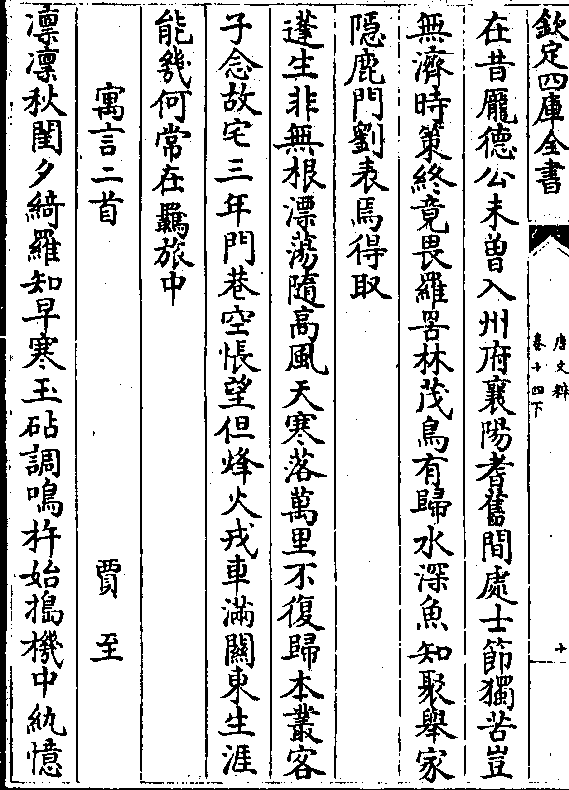 欽定四庫全書
唐文粹
卷十四下
十
在昔龎德公未曽入州府襄陽耆舊間處士節獨苦豈
無濟時策終竟畏羅罟林茂鳥有歸水深魚知聚舉家
隠鹿門劉表焉得取
蓬生非無根漂蕩隨高風天寒落萬里不復歸本叢客
子念故宅三年門巷空悵望但烽火戎車滿關東生涯
能幾何常在羈旅中
寓言二首 賈至
凛凛秋閨夕綺羅知早寒玉砧調鳴杵始搗機中紈憶